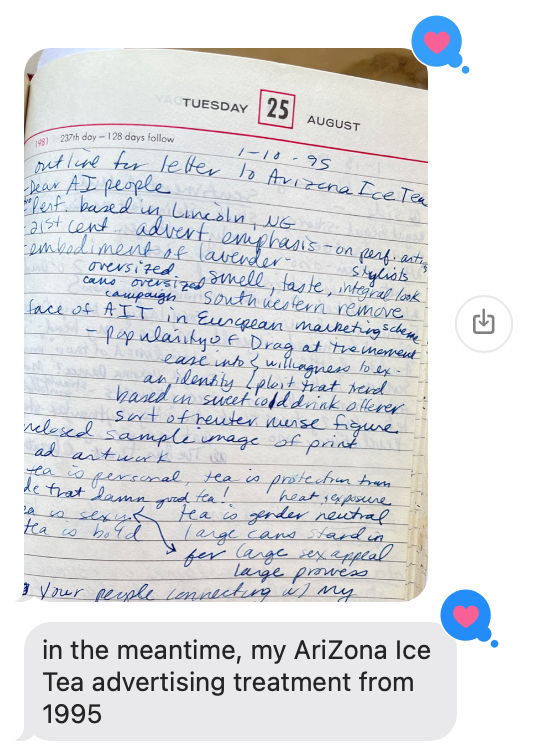 TUESDAY 25 AUGUST
1981 237th day — 128 days follow
1-10-95
outline for letter to Arizona Ice Tea
-Dear AI people
-Perf. based in Lincoln, NG
-21st cent advert emphasis - on perf. artists
stylists
-embodiment of lavender-
oversized smell, taste, integral look
cans oversized Southwestern remove
campaign
face of AIT in European marketing scheme
- popularity of Drag at the moment
ease into { willingness to ex-
an identity { ploit that trend
based on sweet cold drink offerer
sort of neuter nurse figure
nclosed sample image of print
ad artwork
tea is personal, tea is protection from
de that damn good tea! heat, exposure
ea is sexy tea is gender neutral
tea is bold large cans stand in
for large sex appeal
large prowess
your people connecting w/ my
in the meantime, my AriZona Ice
Tea advertising treatment from
1995